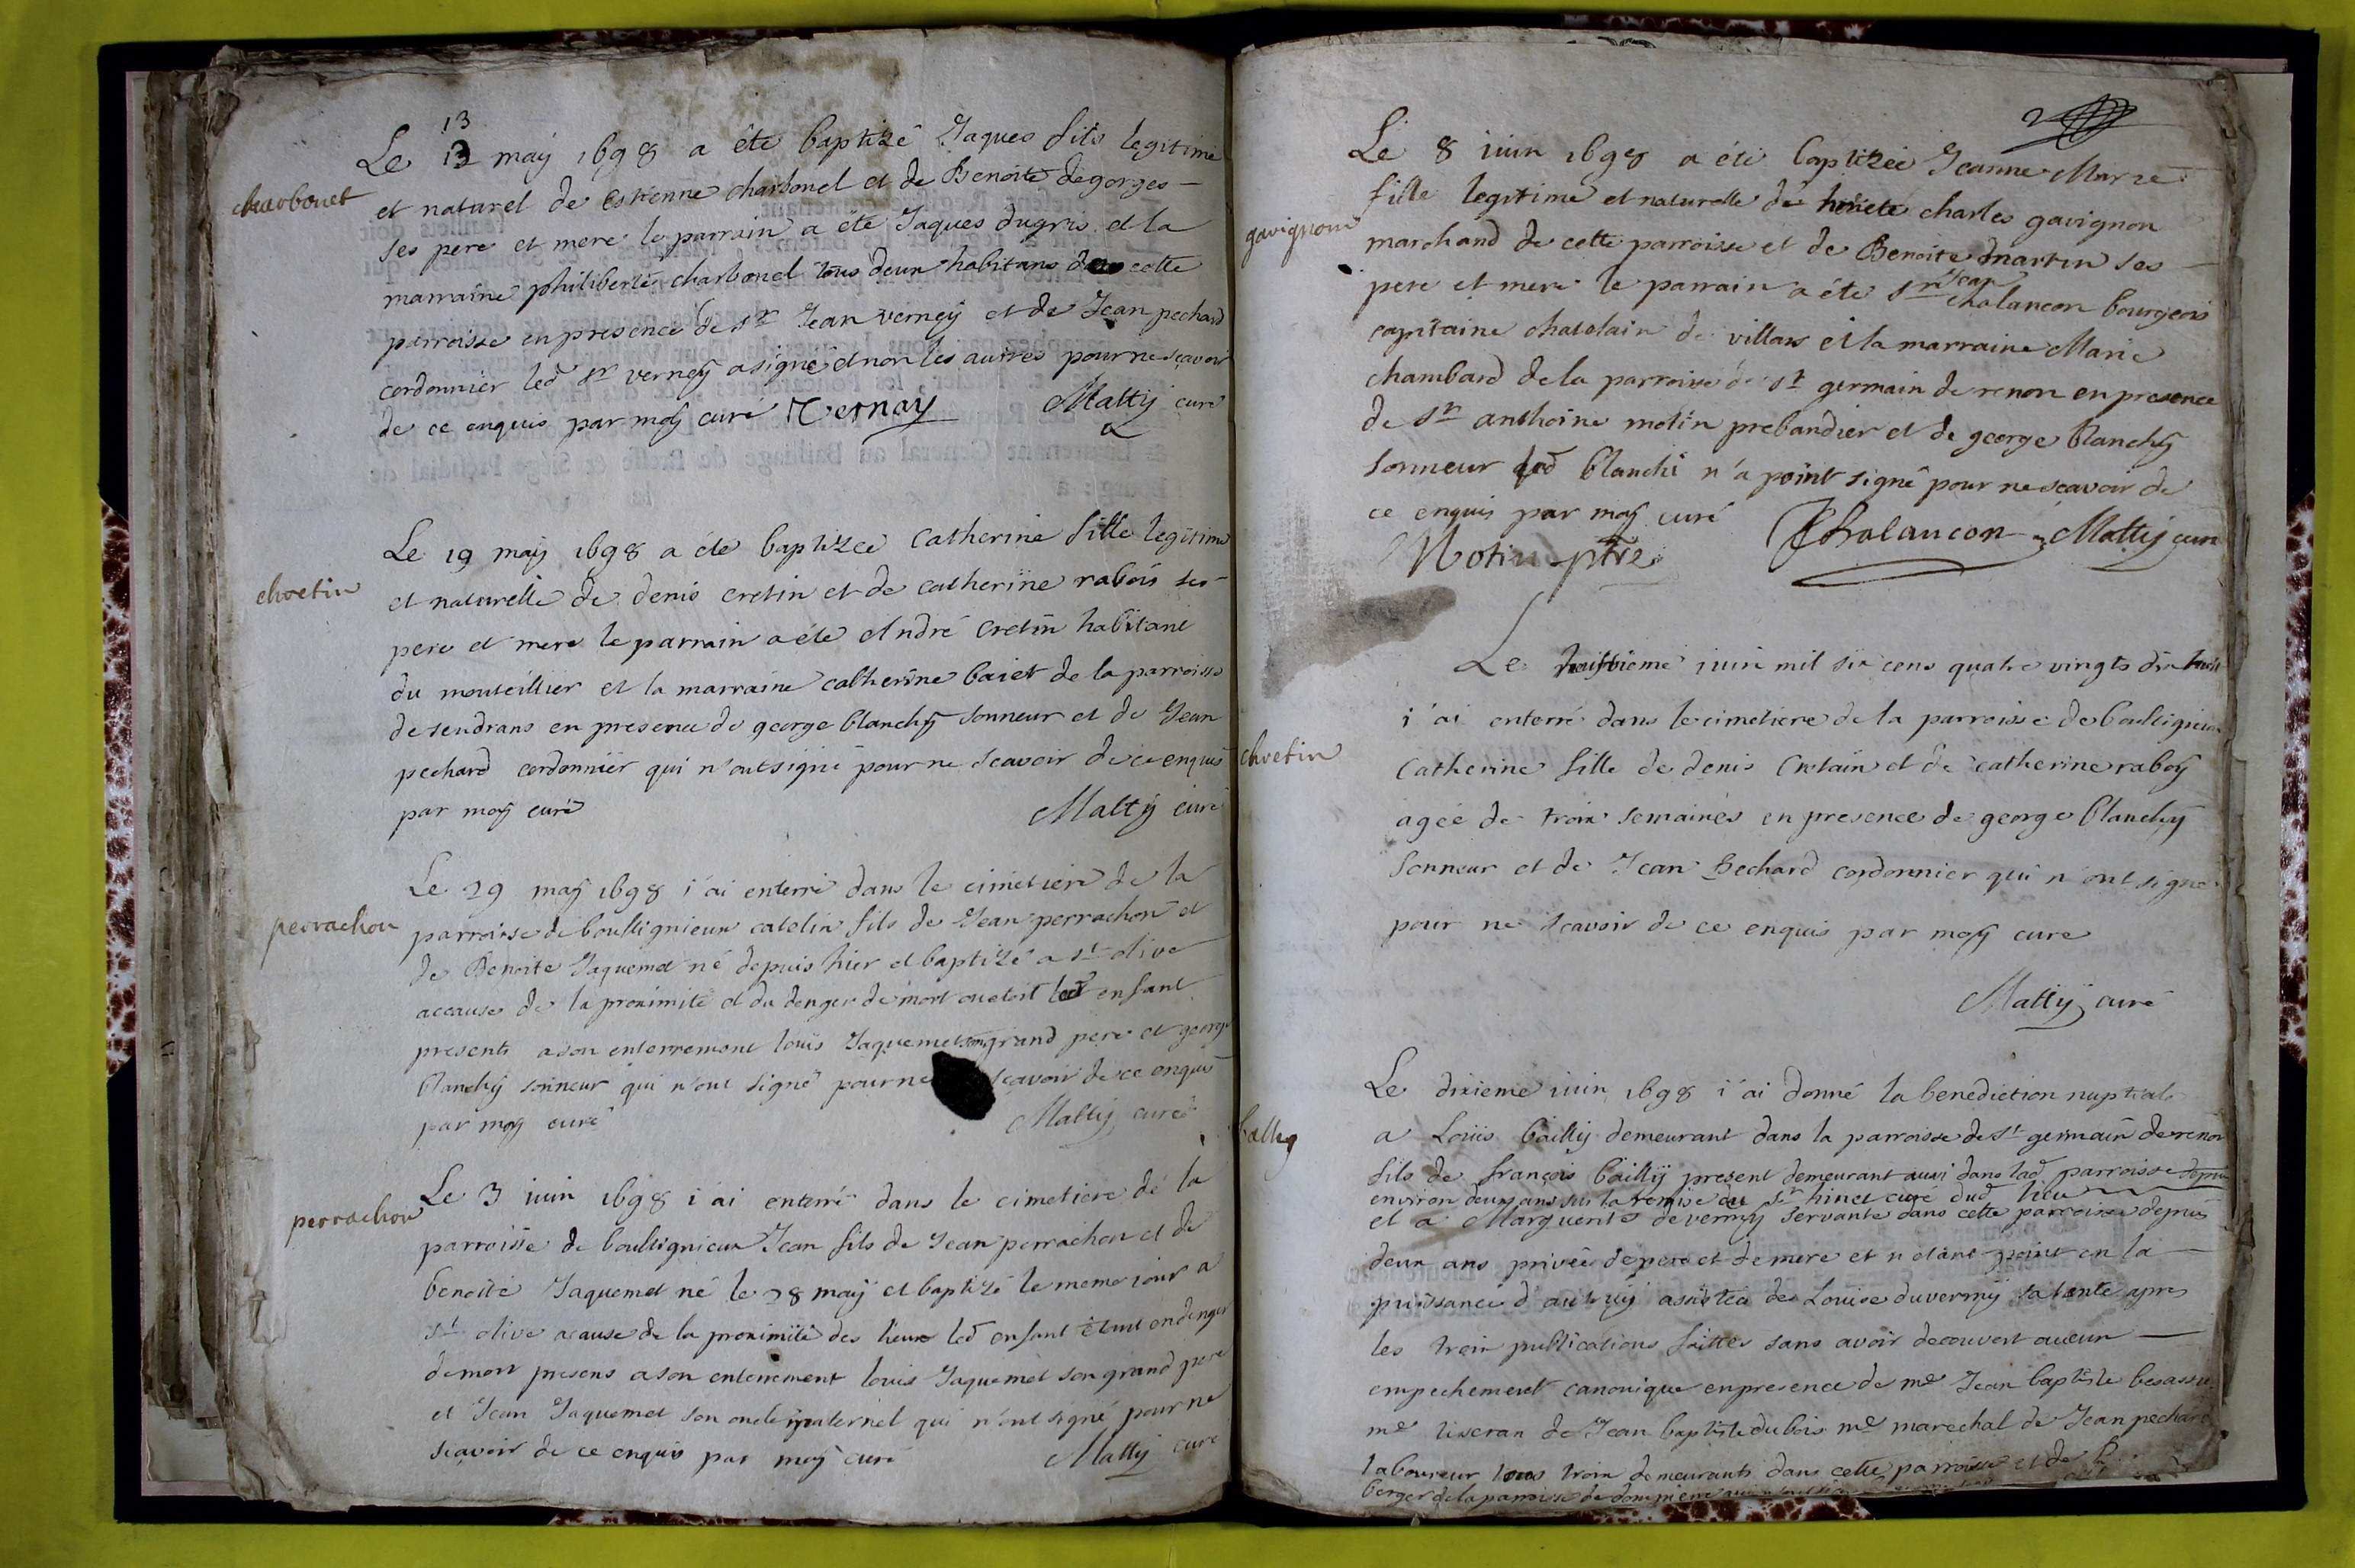 13
Le 13 maÿ 1698 a été baptizé Jaques fils legitime
charbonet
et naturel de estienne charbonel et de Benoite degorges
ses pere et mere le parrain a été Jaques dugris et la
marraine philiberte charbonel tous deux habitans de cette
parroisse en presence de sr Jean verneÿ et de Jean pechard
cordonnier led sr verneÿ a signé et non les autres pour ne scavoir
de ce enquis par moÿ curé Vernay Mattÿ curé
Le 19 maÿ 1698 a été baptizée Catherine fille legitime
chretin
et naturelle de denis cretin et de catherine rabois ses
pere et mere le parrain a été André cretin habitant
du monteillier et la marraine catherine baiet de la parroisse
de sendrans en presence de george blanchÿ sonneur et de Jean
pechard cordonnier qui n'ont signé pour ne scavoir de ce enquis
par moÿ curé Mattÿ curé
Le 29 maÿ 1698 i'ai enterré dans le cimetiere de la
perrachon
parroisse de boullignieux catelin fils de Jean perrachon et
de Benoite Jaquemet né depuis hier et baptizé a st olive
accause de la proximité et du denger de mort ou etoit led enfant
presents a son enterrement louïs Jaquemet son grand pere et george
blanchÿ sonneur qui n'ont signé pour ne scavoir de ce enquis
par moÿ curé Mattÿ curé
Le 3 iuin 1698 i'ai enterré dans le cimetiere de la
perrachon
parroisse de boullignieux Jean fils de Jean perrachon et de
benoite Jaquemet né le 28 maÿ et baptizé le meme iour a
st olive acause de la proximité des lieux led enfant etant en denger
de mort presens a son enterrement louis Jaquemet son grand pere
et Jean Jaquemet son oncle maternel qui n'ont signé pour ne
scavoir de ce enquis par moÿ curé Mattÿ curé
2
Le 8 iuin 1698 a été baptizée Jeanne Marie
fille legitime et naturelle de honete charles gavignon
gavignon
marchand de cette parroisse et de Benoite martin ses
pere et mere le parrain a été sr Jean chalancon bourgeois
capitaine chatelain de villars et la marraine Marie
chambard de la parroisse de st germain de renon en presence
de sr anthoine motin prebandier et de george blanchÿ
sonneur led blanchi n'a point signé pour ne scavoir de
ce enquis par moÿ curé Chalancon Mattÿ curé
Motin ptre
Le huitieme iuin mil six cens quatre vingts dix huit
i'ai enterré dans le cimetiere de la parroisse de boulignieux
chretin
Catherine fille de denis Cretain et de catherine raboÿ
agée de trois semaines en presence de george blanchÿ
sonneur et de Jean Pechard cordonnier qui n'ont signé
pour ne scavoir de ce enquis par moÿ curé
Mattÿ curé
Le dixieme iuin 1698 i'ai donné la benediction nuptiale
bailly
a Louis baillÿ demeurant dans la parroisse de st germain de renon
fils de françois baillÿ present demeurant aussi dans lad parroisse depuis
environ deux ans sur la remise du sr hinet curé dud lieu
et a Marguerite de vernÿ servante dans cette parroisse depuis
deux ans privée de pere et de mere et n'etant point en la
puissance d'autruÿ assistée de Louise duvernÿ sa tante apres
les trois publications faittes sans avoir decouvert aucun
empechement canonique en presence de me Jean baptiste besassu
me tiseran de Jean baptiste dubois me marechal de Jean pechard
laboureur tous trois demeurants dans cette parroisse et de
berger de la parroisse de dompierre